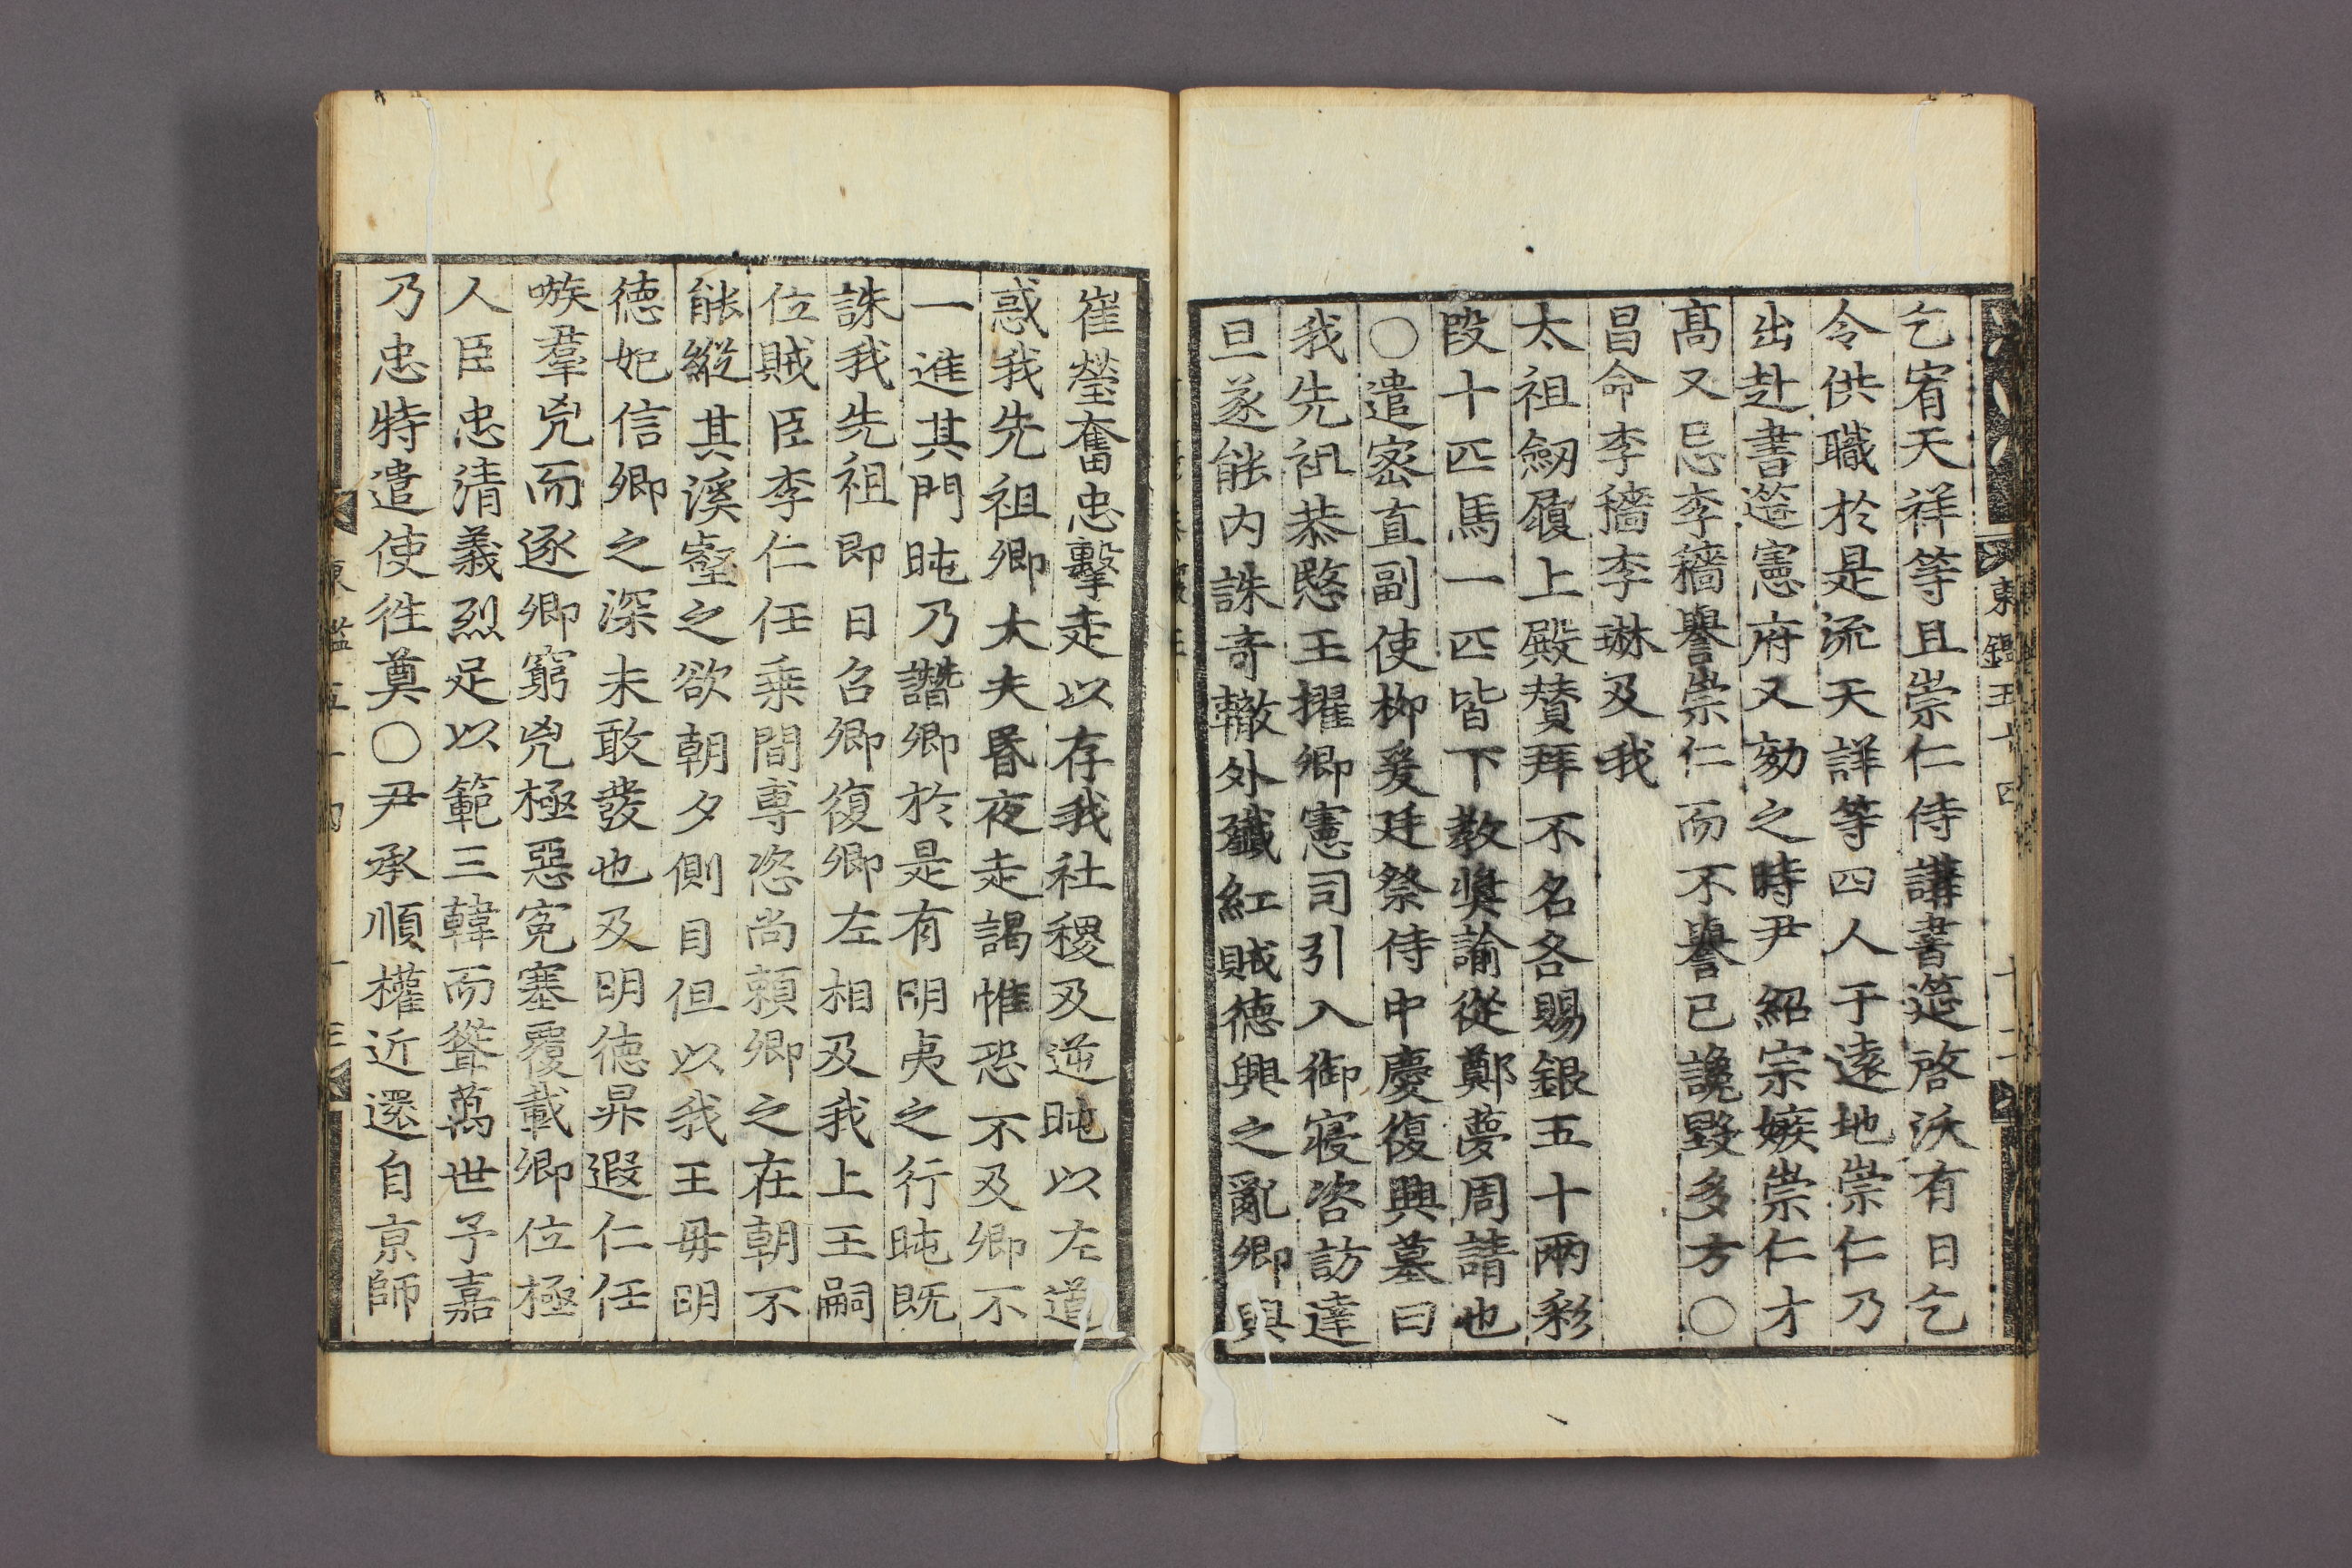 乞宥天祥等且崇仁侍講書筵啓沃有日乞
令供職於是流天詳等四人于遠地崇仁乃
出赴書筵憲府又劾之時尹紹宗嫉崇仁才
高又忌李穡譽崇仁而不譽已讒毀多方〇
昌命李穡李琳及我
太祖劒履上殿賛拜不名各賜銀五十兩彩
段十匹馬一匹皆下教奬諭從鄭夢周請也
〇遣密直副使柳爰廷祭侍中慶復興墓曰
我先祖恭愍王擢卿憲司引入御寢咨訪達
旦遂能内誅奇轍外殲紅賊德興之亂卿與
崔瑩奮忠擊走以存我社稷及逆旽以左道
惑我先祖卿太夫昬夜走謁惟恐不及卿不
一進其門旽乃譖卿於是有明夷之行旽既
誅我先祖即日召卿復卿左相及我上王嗣
位賊臣李仁任乗間専恣尚頼卿之在朝不
能縱其溪壑之欲朝夕側目但以我王毋明
德妃信卿之深未敢發也及明德昇遐仁任
嗾羣兇而逐卿窮兇極惡寃塞覆載卿位極
人臣忠清義烈足以範三韓而聳萬世予嘉
乃忠特遣使徃奠〇尹承順權近還自京師
東鑑五十四